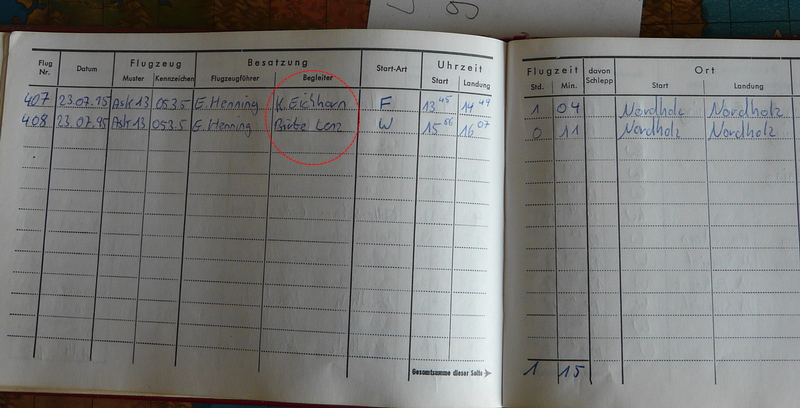 Flug Nr. Datum Flugzeug Muster Kennzeichen Besatzung Flugzeugführer Begleiter Start-Art Uhrzeit Start Landung Flugzeit Std. Min. davon Schlepp Ort Start Landung
407 23.07.95 Ask 13 0535 E. Henning K. Eichhorn F 13 45 14 49 1 04 Nordholz Nordholz
408 23.07.95 Ask 13 0535 E. Henning Lenz W 15 56 16 07 0 11 Nordholz Nordholz
Gesamtsumme dieser Seite 1 15